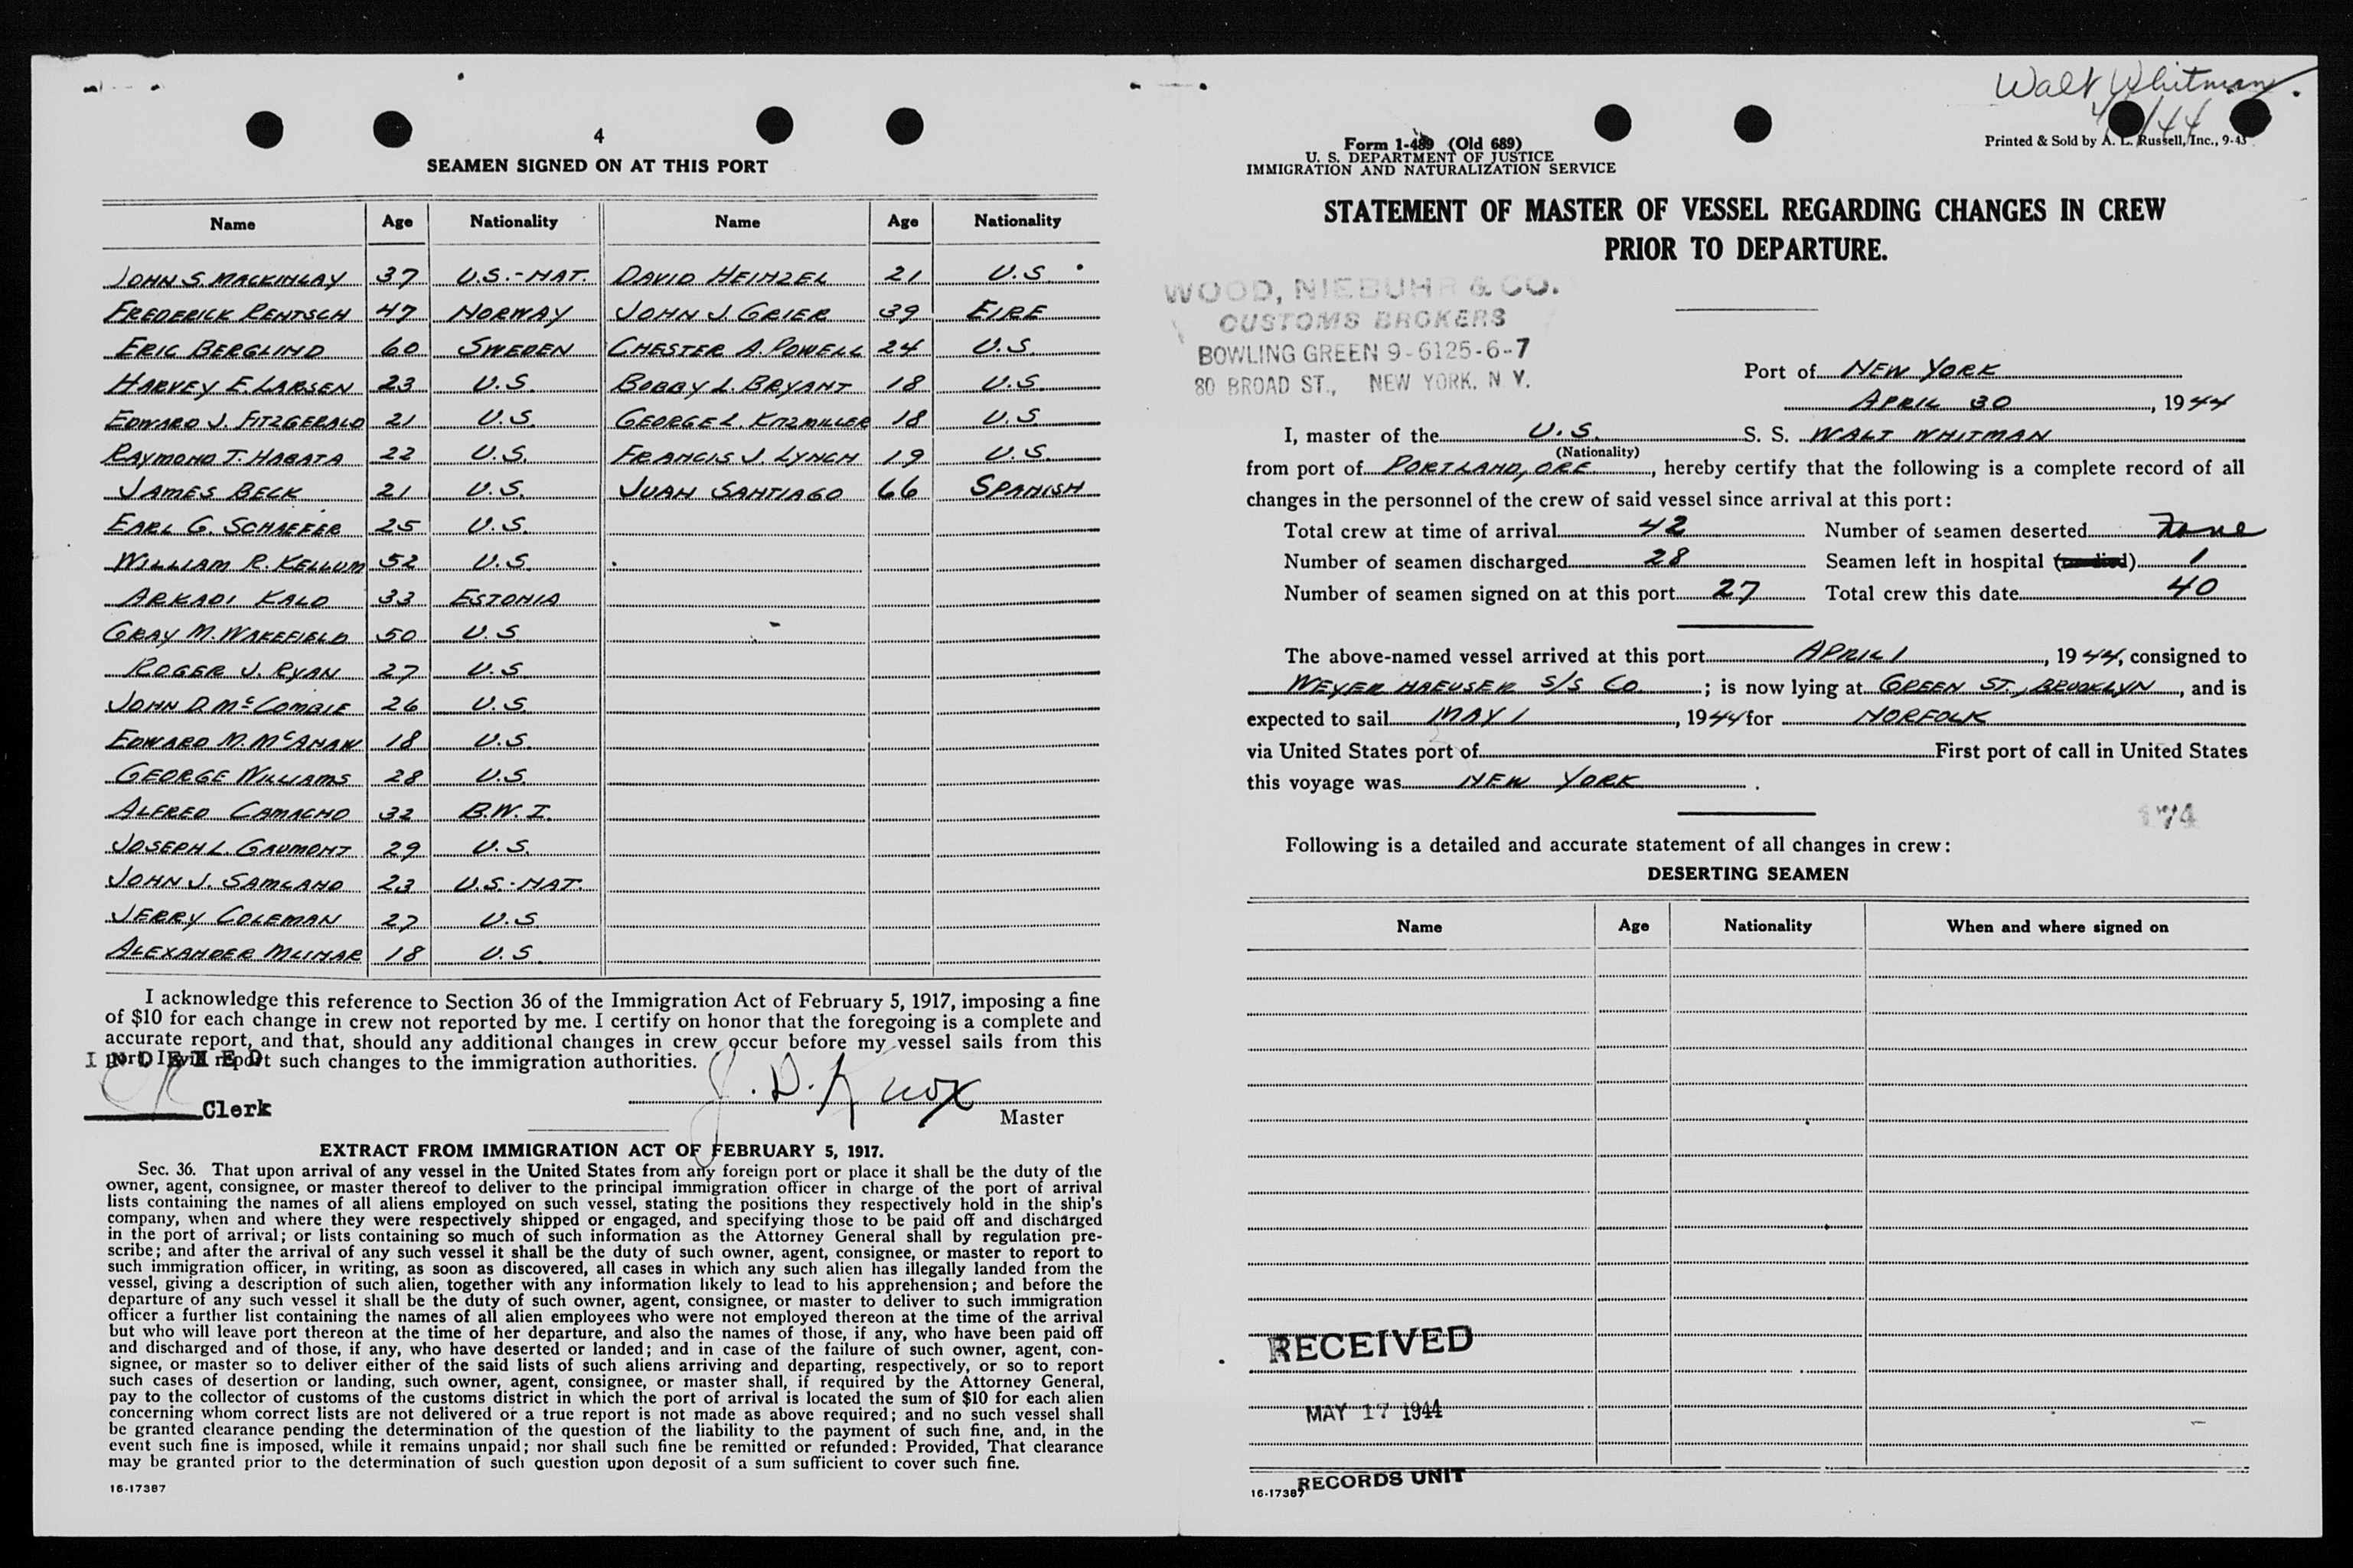 4
SEAMEN SIGNED ON AT THIS PORT
Name Age Nationality Name Age Nationality
JOHN S. MACKINLAY 37 U.S.-NAT. DAVID HEINZEL 21 U.S.
FREDERICK RENTSCH 47 NORWAY JOHN J. GRIER 39 EIRE
ERIC BERGLIND 60 SWEDEN CHESTER A. POWELL 24 U.S.
HARVEY E. LARSEN 23 U.S. BOBBY L. BRYANT 18 U.S.
EDWARD J. FITZGERALD 21 U.S. GEORGE L. KITZMILLER 18 U.S.
RAYMOND T. HABATA 22 U.S. FRANCIS J. LYNCH 19 U.S.
JAMES BECK 21 U.S. JUAN SANTIAGO 66 SPANISH
EARL G. SCHAEFER 25 U.S.
WILLIAM R. KELLUM 52 U.S.
ARKADI KALD 33 ESTONIA
GRAY M. WAKEFIELD 50 U.S
ROGER J. RYAN 27 U.S
JOHN D. McCOMBIE 26 U.S.
EDWARD M. McANAW 18 U.S.
GEORGE WILLIAMS 28 U.S.
ALFRED CAMACHO 32 B.W.I.
JOSEPH L. GAUMONT 29 U.S.
JOHN J. SAMLAND 23 U.S.-NAT.
JERRY COLEMAN 27 U.S
ALEXANDER MLINAR 18 U.S.
I acknowledge this reference to Section 36 of the Immigration Act of February 5, 1917, imposing a fine
of $10 for each change in crew not reported by me. I certify on honor that the foregoing is a complete and
accurate report, and that, should any additional changes in crew occur before my vessel sails from this
port, I will report such changes to the immigration authorities.
INDEXED
J. D. Knox
Clerk
Master
EXTRACT FROM IMMIGRATION ACT OF FEBRUARY 5, 1917.
Sec. 36. That upon arrival of any vessel in the United States from any foreign port or place it shall be the duty of the
owner, agent, consignee, or master thereof to deliver to the principal immigration officer in charge of the port of arrival
lists containing the names of all aliens employed on such vessel, stating the positions they respectively hold in the ship's
company, when and where they were respectively shipped or engaged, and specifying those to be paid off and discharged
in the port of arrival; or lists containing so much of such information as the Attorney General shall by regulation pre-
scribe; and after the arrival of any such vessel it shall be the duty of such owner, agent, consignee, or master to report to
such immigration officer, in writing, as soon as discovered, all cases in which any such alien has illegally landed from the
vessel, giving a description of such alien, together with any information likely to lead to his apprehension; and before the
departure of any such vessel it shall be the duty of such owner, agent, consignee, or master to deliver to such immigration
officer a further list containing the names of all alien employees who were not employed thereon at the time of the arrival
but who will leave port thereon at the time of her departure, and also the names of those, if any, who have been paid off
and discharged and of those, if any, who have deserted or landed; and in case of the failure of such owner, agent, con-
signee, or master so to deliver either of the said lists of such aliens arriving and departing, respectively, or so to report
such cases of desertion or landing, such owner, agent, consignee, or master shall, if required by the Attorney General,
pay to the collector of customs of the customs district in which the port of arrival is located the sum of $10 for each alien
concerning whom correct lists are not delivered or a true report is not made as above required; and no such vessel shall
be granted clearance pending the determination of the question of the liability to the payment of such fine, and, in the
event such fine is imposed, while it remains unpaid; nor shall such fine be remitted or refunded: Provided, That clearance
may be granted prior to the determination of such question upon deposit of a sum sufficient to cover such fine.
16-17387
Walt Whitman.
Form 1-489 (Old 689)
U. S. DEPARTMENT OF JUSTICE
IMMIGRATION AND NATURALIZATION SERVICE
Printed & Sold by A. L. Russell, Inc., 9-43
STATEMENT OF MASTER OF VESSEL REGARDING CHANGES IN CREW
PRIOR TO DEPARTURE.
WOOD, NIEBUHR & CO.
CUSTOMS BROKERS
BOWLING GREEN 9-6125-6-7
80 BROAD ST., NEW YORK, N Y.
Port of NEW YORK
APRIL 30, 1944
I, master of the U.S. S. S. WALT WHITMAN
(Nationality)
from port of PORTLAND, ORE, hereby certify that the following is a complete record of all
changes in the personnel of the crew of said vessel since arrival at this port:
Total crew at time of arrival 42 Number of seamen deserted None
Number of seamen discharged 28 Seamen left in hospital (or died) 1
Number of seamen signed on at this port 27 Total crew this date 40
The above-named vessel arrived at this port APRIL 1, 1944, consigned to
WEYERHAEUSER S/S CO; is now lying at GREEN ST., BROOKLYN, and is
expected to sail MAY 1, 1944 for NORFOLK
via United States port of First port of call in United States
this voyage was NEW YORK.
Following is a detailed and accurate statement of all changes in crew:
DESERTING SEAMEN
Name Age Nationality When and where signed on
RECEIVED
MAY 17 1944
RECORDS UNIT
16-17387